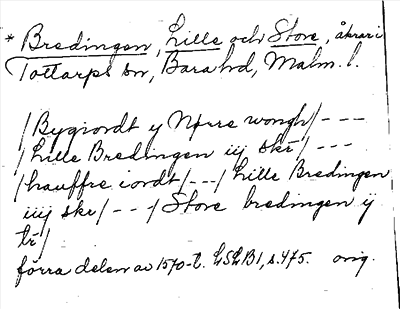 * Bredingen, Lille och Store, åkrar i
Tottarps sn, Bara hd, Malm. l.
/Bygiordt y Nørre wongh/---
/Lille Bredingen iij skr/---
/hauffre iordt/---/Lille Bredingen
iiij skr/---/Store bredingen ij
tr/
förra delen av 1570-t. LSLB1, s.475. orig.